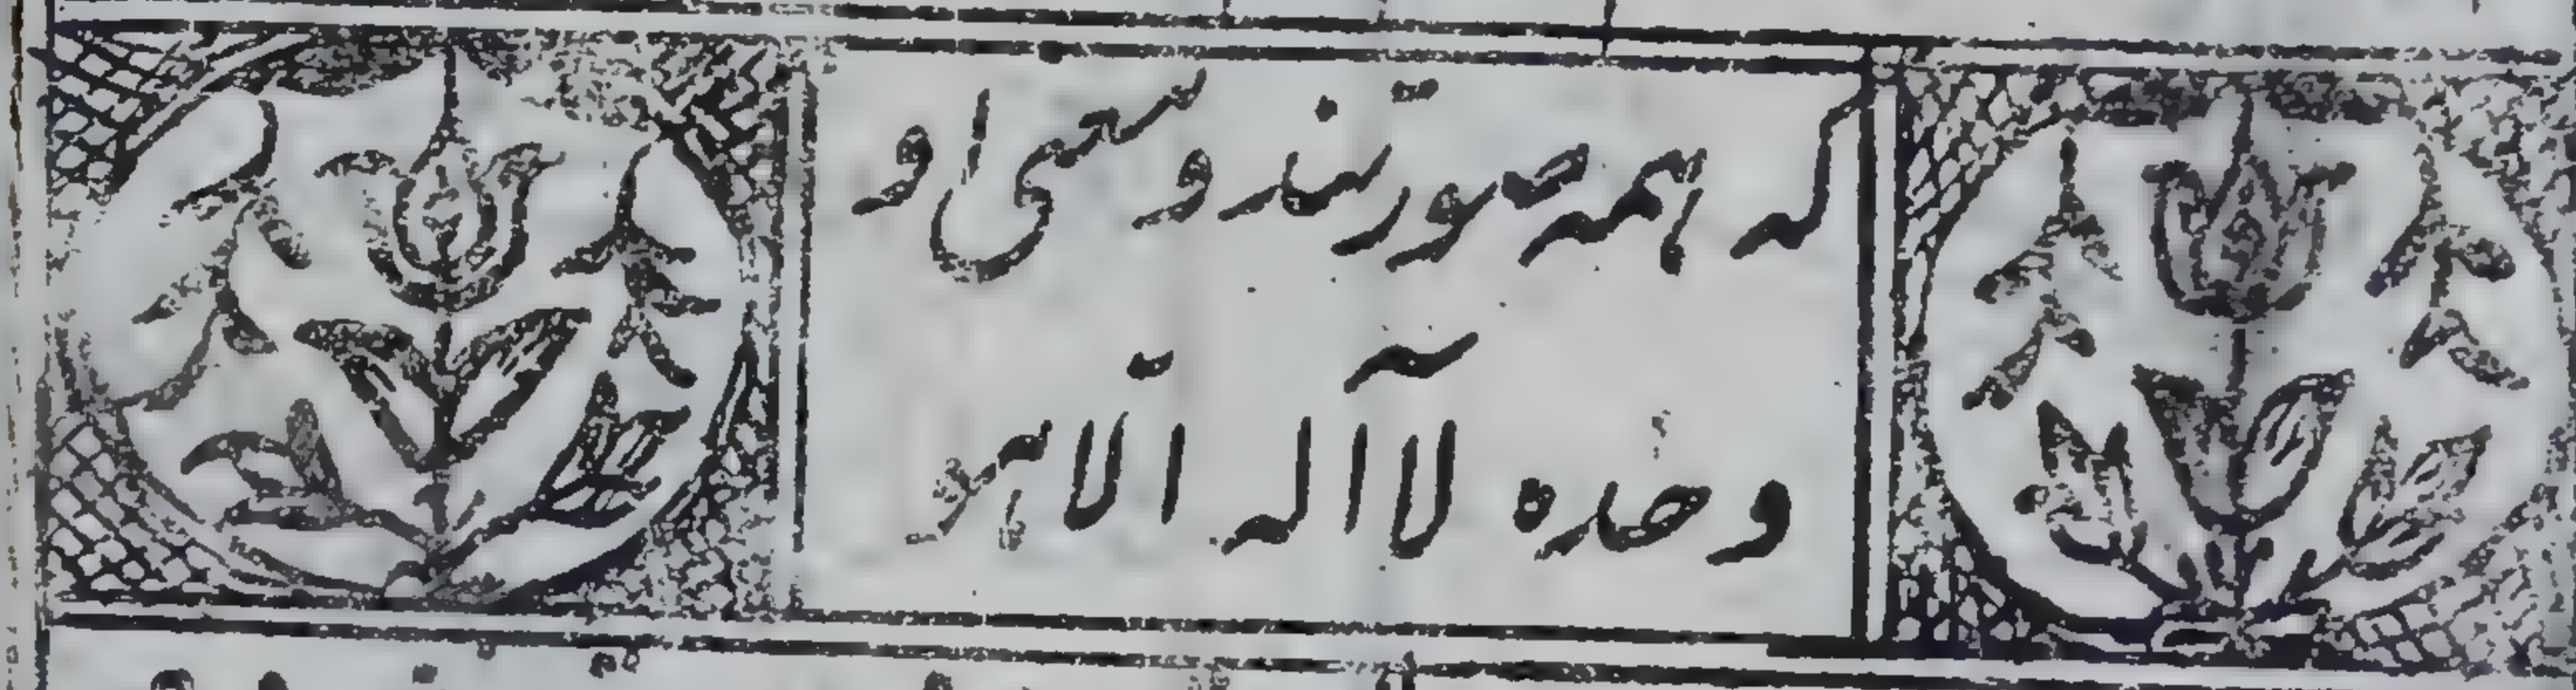 که همه صورتند و معنی او
وحده لا آله الّا هو